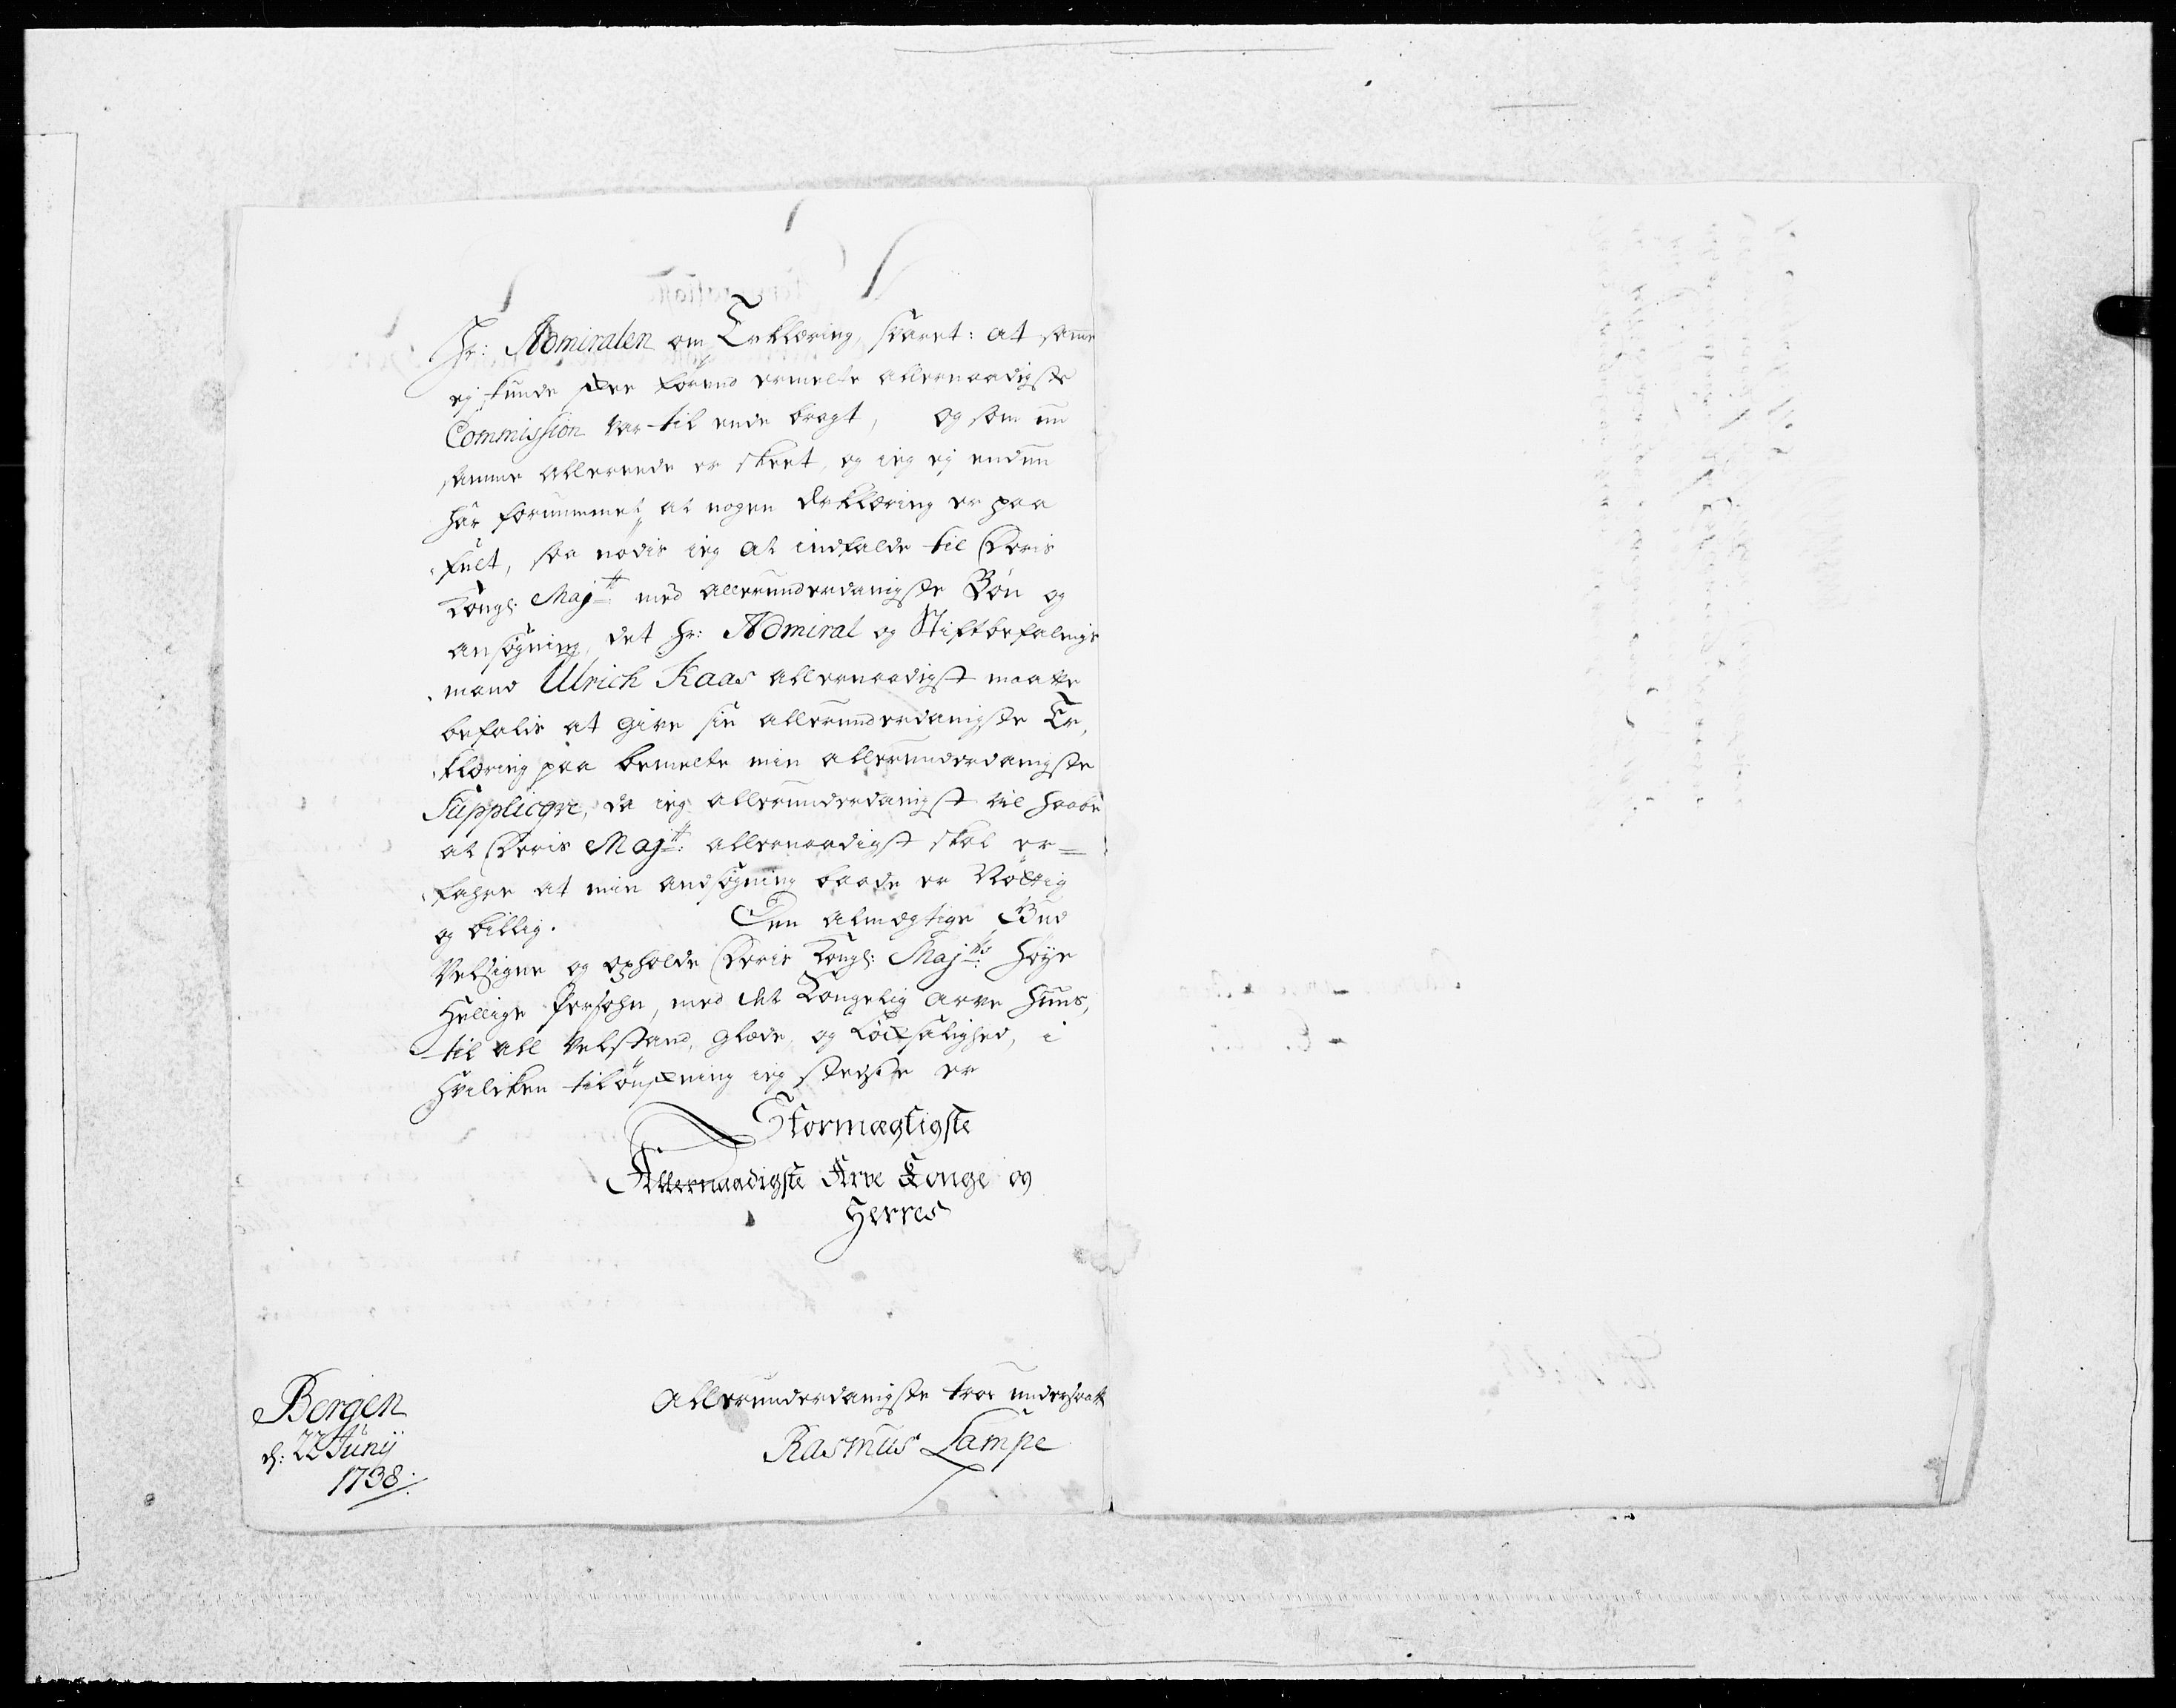 Hr: Admiralen om Erklæring, svaret: at samme
ej kunde skee forend ermelte allernaadigste
Commission var til ende bragt, og som nu
samme allerede er skeet, og ieg ej enduu
har fornummet, at nogen Erklæring er paa
fult, saa nødis ieg at indfalde til Deris
Kongl: Majtt: med allerunderdanigste Bøn og
ansøgning, det Hr: Admiral og Stiftbefalings
mand Ulrich Kaas allernaadigst maatte
befalis at give sin allerunderdanigste Er,
klæring paa bemelte min allerunderdanigste
Supplicqve, da ieg allerunderdanigst vil haabe
at Deris Majtt: allernaadigst skal er=
fahre at min andsøgning baade er Nøttig
og billig. Den almægtige Gud
Velsigne og opholde Deris Kongl: Majtts: høye
Hellige Persohn, med det Kongelig arve Huus,
til all Velstand, glæde, og Lÿksalighed, i
hvilken tilønskning ieg stedse er
Stormægtigste
Allernaadigste Arve Konge og
Herres
Allerunderdanigste troe undersaatt
Rasmus Lampe
Bergen
d: 22 Junij
1738.